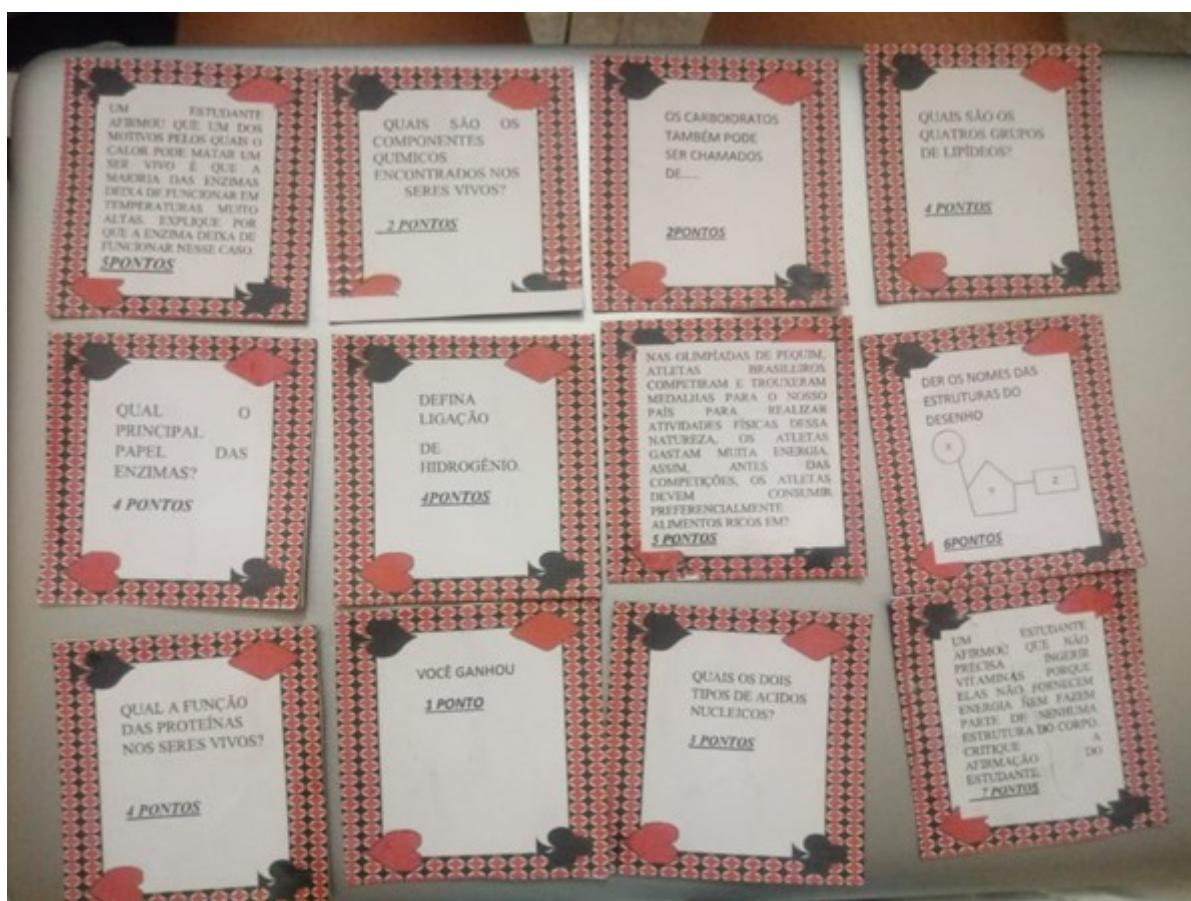 UM ESTUDANTE
AFIRMOU QUE UM DOS
MOTIVOS PELOS QUAIS O
CALOR PODE MATAR UM
SER VIVO É QUE A
MAIORIA DAS ENZIMAS
DEIXA DE FUNCIONAR EM
TEMPERATURAS MUITO
ALTAS. EXPLIQUE POR
QUE A ENZIMA DEIXA DE
FUNCIONAR NESSE CASO.
5PONTOS
QUAIS SÃO OS
COMPONENTES
QUIMICOS
ENCONTRADOS NOS
SERES VIVOS?
2 PONTOS
OS CARBOIDRATOS
TAMBÉM PODE
SER CHAMADOS
DE.....
2PONTOS
QUAIS SÃO OS
QUATROS GRUPOS
DE LIPÍDEOS?
4 PONTOS
QUAL O
PRINCIPAL
PAPEL DAS
ENZIMAS?
4 PONTOS
DEFINA
LIGAÇÃO
DE
HIDROGÊNIO.
4PONTOS
NAS OLIMPÍADAS DE PEQUIM,
ATLETAS BRASILIROS
COMPETIRAM E TROUXERAM
MEDALHAS PARA O NOSSO
PAÍS PARA REALIZAR
ATIVIDADES FÍSICAS DESSA
NATUREZA, OS ATLETAS
GASTAM MUITA ENERGIA,
ASSIM, ANTES DAS
COMPETIÇÕES, OS ATLETAS
DEVEM CONSUMIR
PREFERENCIALMENTE
ALIMENTOS RICOS EM?
5 PONTOS
DER OS NOMES DAS
ESTRUTURAS DO
DESENHO
X
Y
Z
6PONTOS
QUAL A FUNÇÃO
DAS PROTEÍNAS
NOS SERES VIVOS?
4 PONTOS
VOCÊ GANHOU
1 PONTO
QUAIS OS DOIS
TIPOS DE ACIDOS
NUCLEICOS?
3 PONTOS
UM ESTUDANTE
AFIRMOU QUE NÃO
PRECISA INGERIR
VITAMINAS PORQUE
ELAS NÃO FORNECEM
ENERGIA NEM FAZEM
PARTE DE NENHUMA
ESTRUTURA DO CORPO.
CRITIQUE A
AFIRMAÇÃO DO
ESTUDANTE.
7 PONTOS